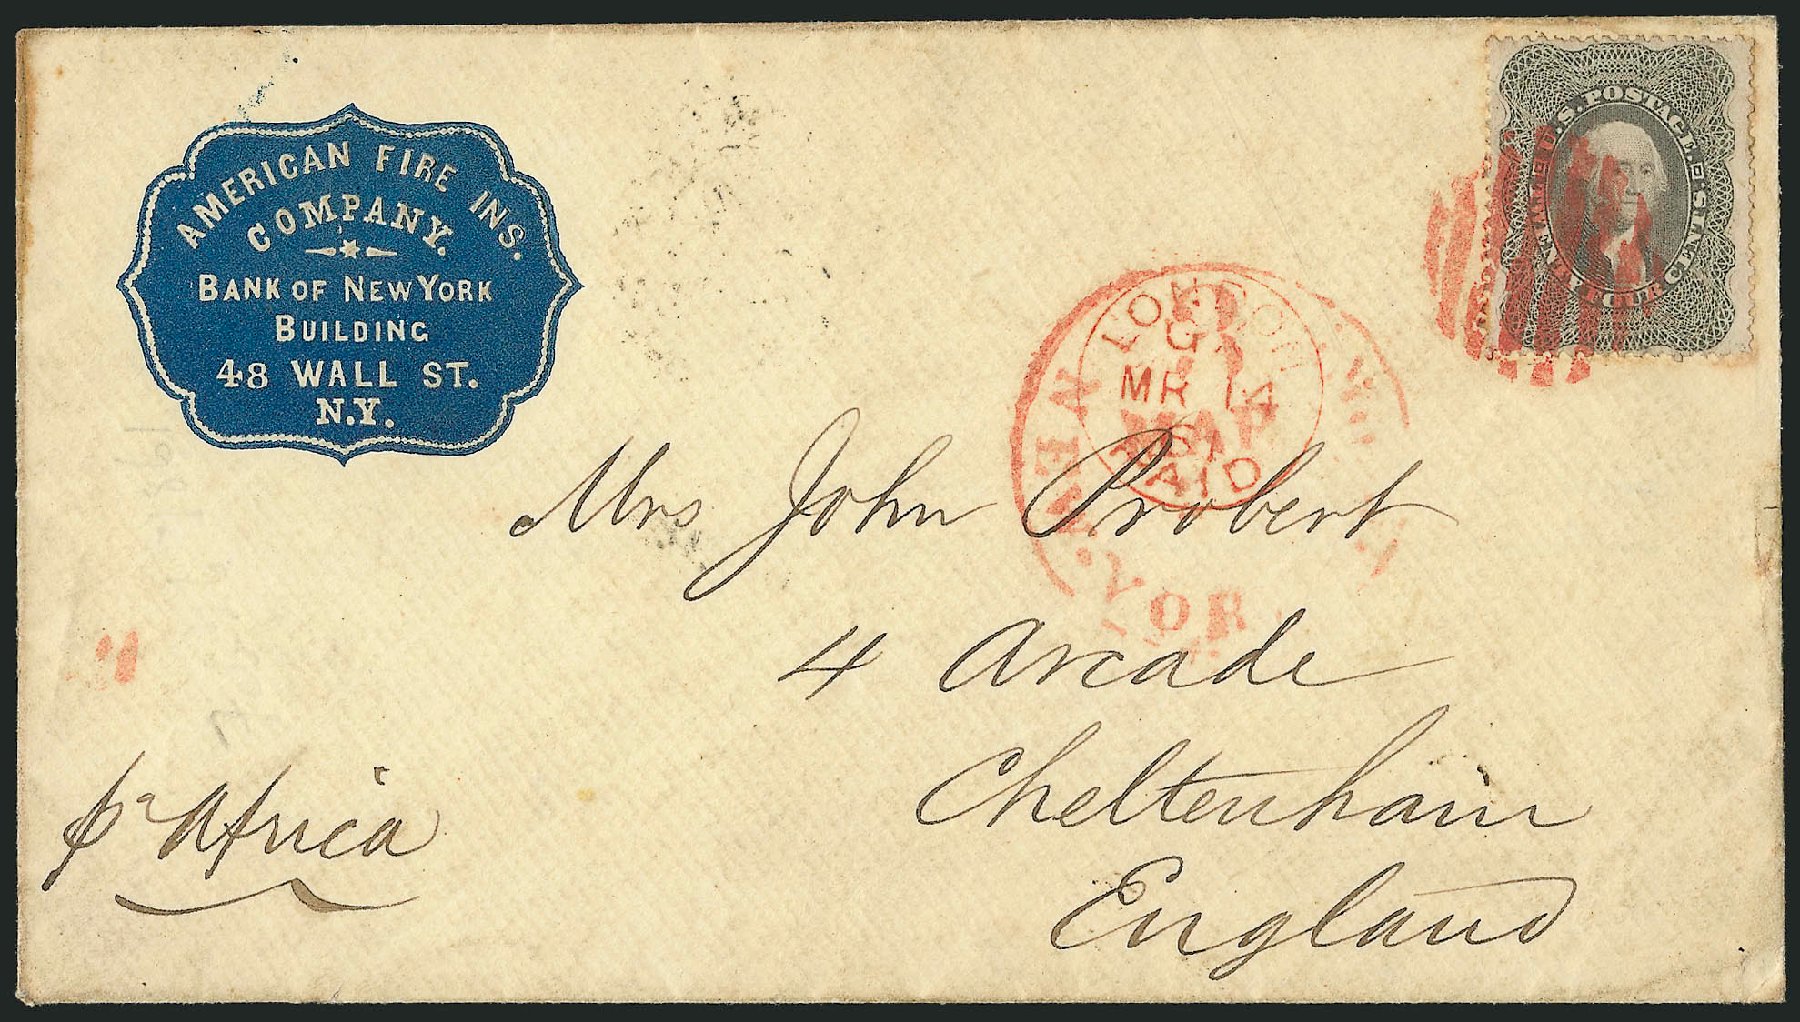 AMERICAN FIRE INS.
COMPANY.
BANK OF NEW YORK
BUILDING
48 WALL ST.
N.Y.
U.S. POSTAGE.
TWENTY FOUR CENTS.
LONDON
MR 14
61
PAID
NEW
YOR
Mrs John Probert
4 Arcade
Cheltenham
England
pr Africa